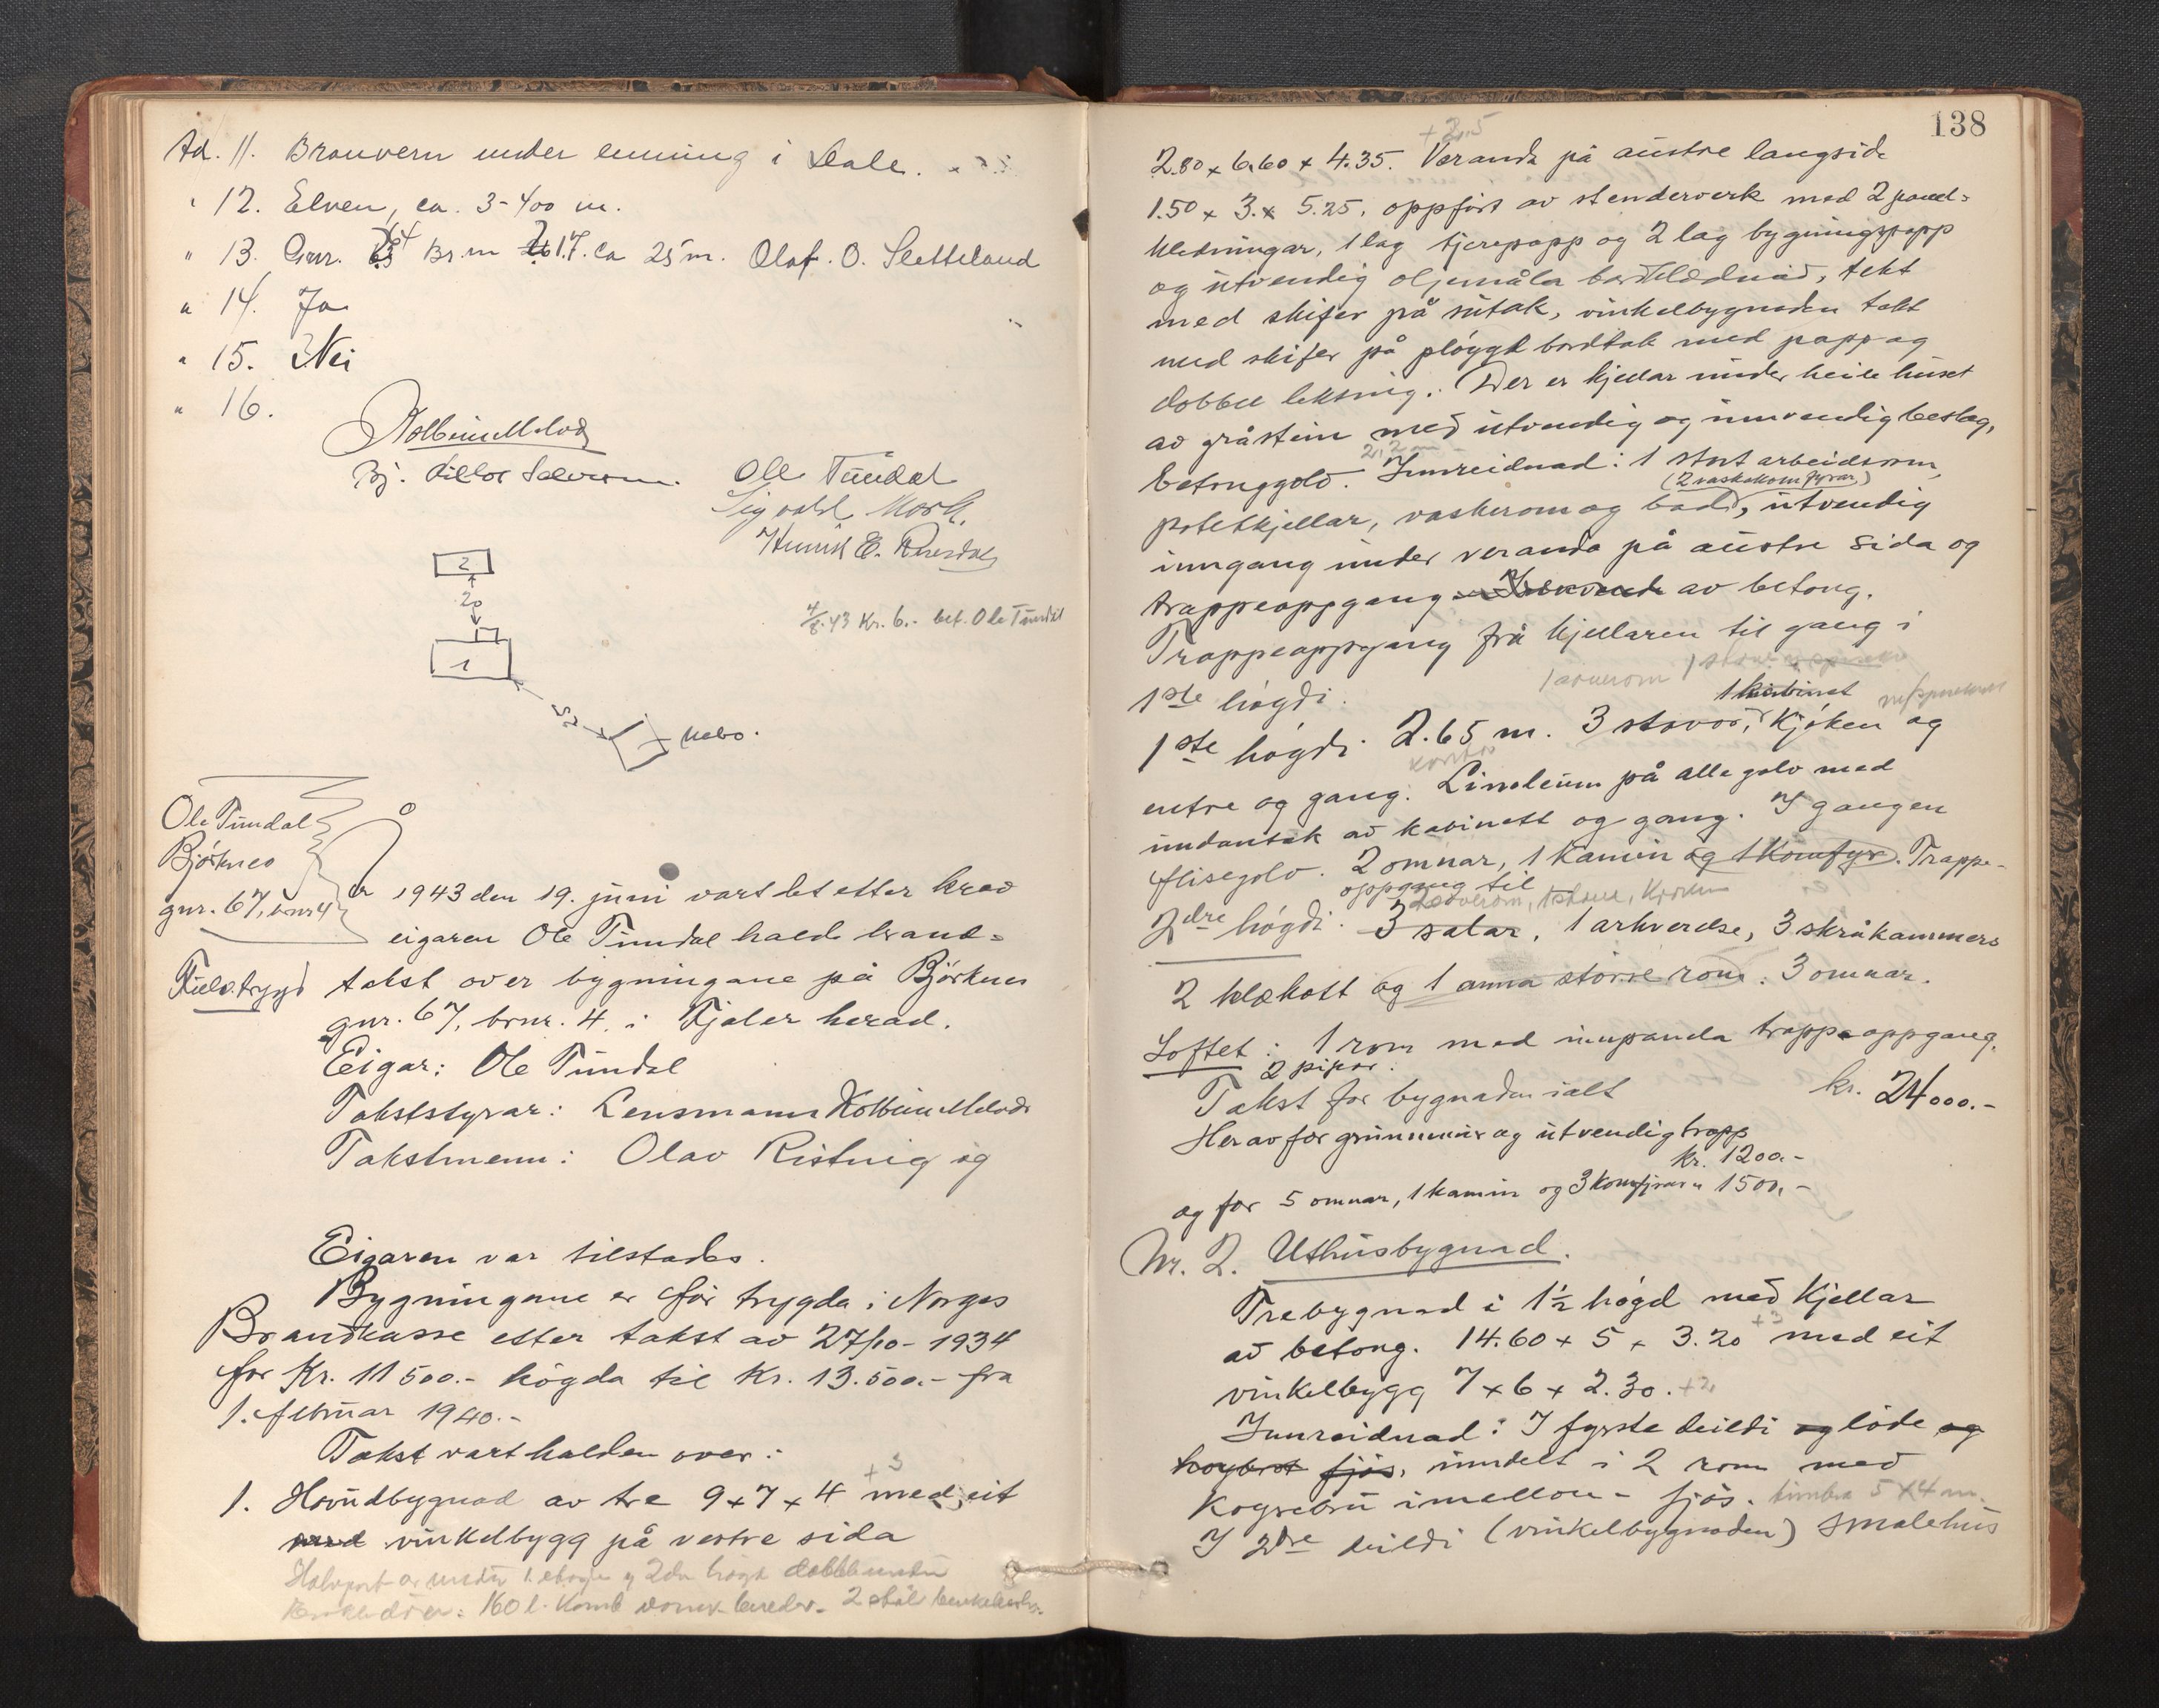 Ad. 11. Branvern under emning i Dale.
" 12. Elven, ca. 3-400 m.
" 13. Gnr. 64 Br.nr 17. ca 25 m. Olaf. O. Sletteland
" 14. Ja
" 15. Nei
" 16.
Kolbein Melvær
Ole Tundal
Sigvald Mork.
Henrik E.
2
20
1
52
Nabo.
4/8.43 Kr. 6.- bet. Ole Tundal
Ole Tundal
Bjørknes
gnr. 67, bnr 4
År 1943 den 19. juni vart det etter krav
eigaren Ole Tundal halde brand-
takst over bygningane på Bjørknes
gnr. 67, brnr. 4, i Fjaler herad.
Eigar: Ole Tundal
Takststyrar: Lensmann Kolbein Melvær
Takstmenn: Olav Ristvig og
Eigaren var tilstades.
Bygningane er før trygda i Norges
Brandkasse etter takst av 27/10-1934
for Kr. 11500.- høgda til Kr. 13.500.- fra
1. februar 1940.-
Takst vart halden over:
+3
1. Hovudbygnad av tre 9x7x4 med eit
med vinkelbygg på vestre sida
Halvpart er under 1. etasje og 2dre høgd
160 l. Komb
138
+2,5
2.80 x 6.60 x 4.35. Veranda på austre langside
1.50 x 3. x 5.25, oppført av stenderverk med 2 panel-
kledningar, 1 lag tjerepapp og 2 lag bygningspapp
og utvendig oljemåla bordklædnad, tekt
med skifer på sutak, vinkelbygnaden tekt
med skifer på pløygt bordtak med papp og
dobbel lektning. Der er kjellar under heile huset
av gråstein med utvendig og innvendig beslag,
2,2 m
betonggolv. Innreidnad: 1 stort arbeidsrom,
(2 vaskekomfyrar)
potetkjellar, vaskerom og bad, utvendig
inngang under veranda på austre sida og
trappeoppgang av betong.
Trappeoppgang frå kjellaren til gang i
1ste høgdi.
1 soverom
1 kabinet
1ste høgdi 2.65 m. 3 stovor, kjøken og
kontor
entre og gang. Linoleum på alle golv med
undantak av kabinett og gang. I gangen
flisegolv. 2 omnar, 1 kamin og 1 komfyr. Trappe-
oppgang til
soverom, 1 stova, Kjøken
2dre høgdi. 3 salar, 1 arkverelse, 3 skråkammers
2 klækott og 1 anna større rom. 3 omnar.
Loftet: 1 rom med innpanela trappeoppgang.
2 pipor.
Takst for bygnaden ialt kr. 24000.-
Herav for grunnmur og utvendig trapp
kr. 1200.-
og for 5 omnar, 1 kamin og 3 komfyrar " 1500,-
Nr. 2. Uthusbygnad.
Trebygnad i 1½ høgd med kjellar
+3
av betong. 14.60 x 5 x 3.20 med eit
vinkelbygg 7 x 6 x 2.30. +2
Innreidnad: I fyrste deildi og løde og
høybrot fjøs, inndelt i 2 rom med
køyrebru imellom - fjøs. timbra 5x4 m.
I 2dre deildi (vinkelbygnaden) smalehus